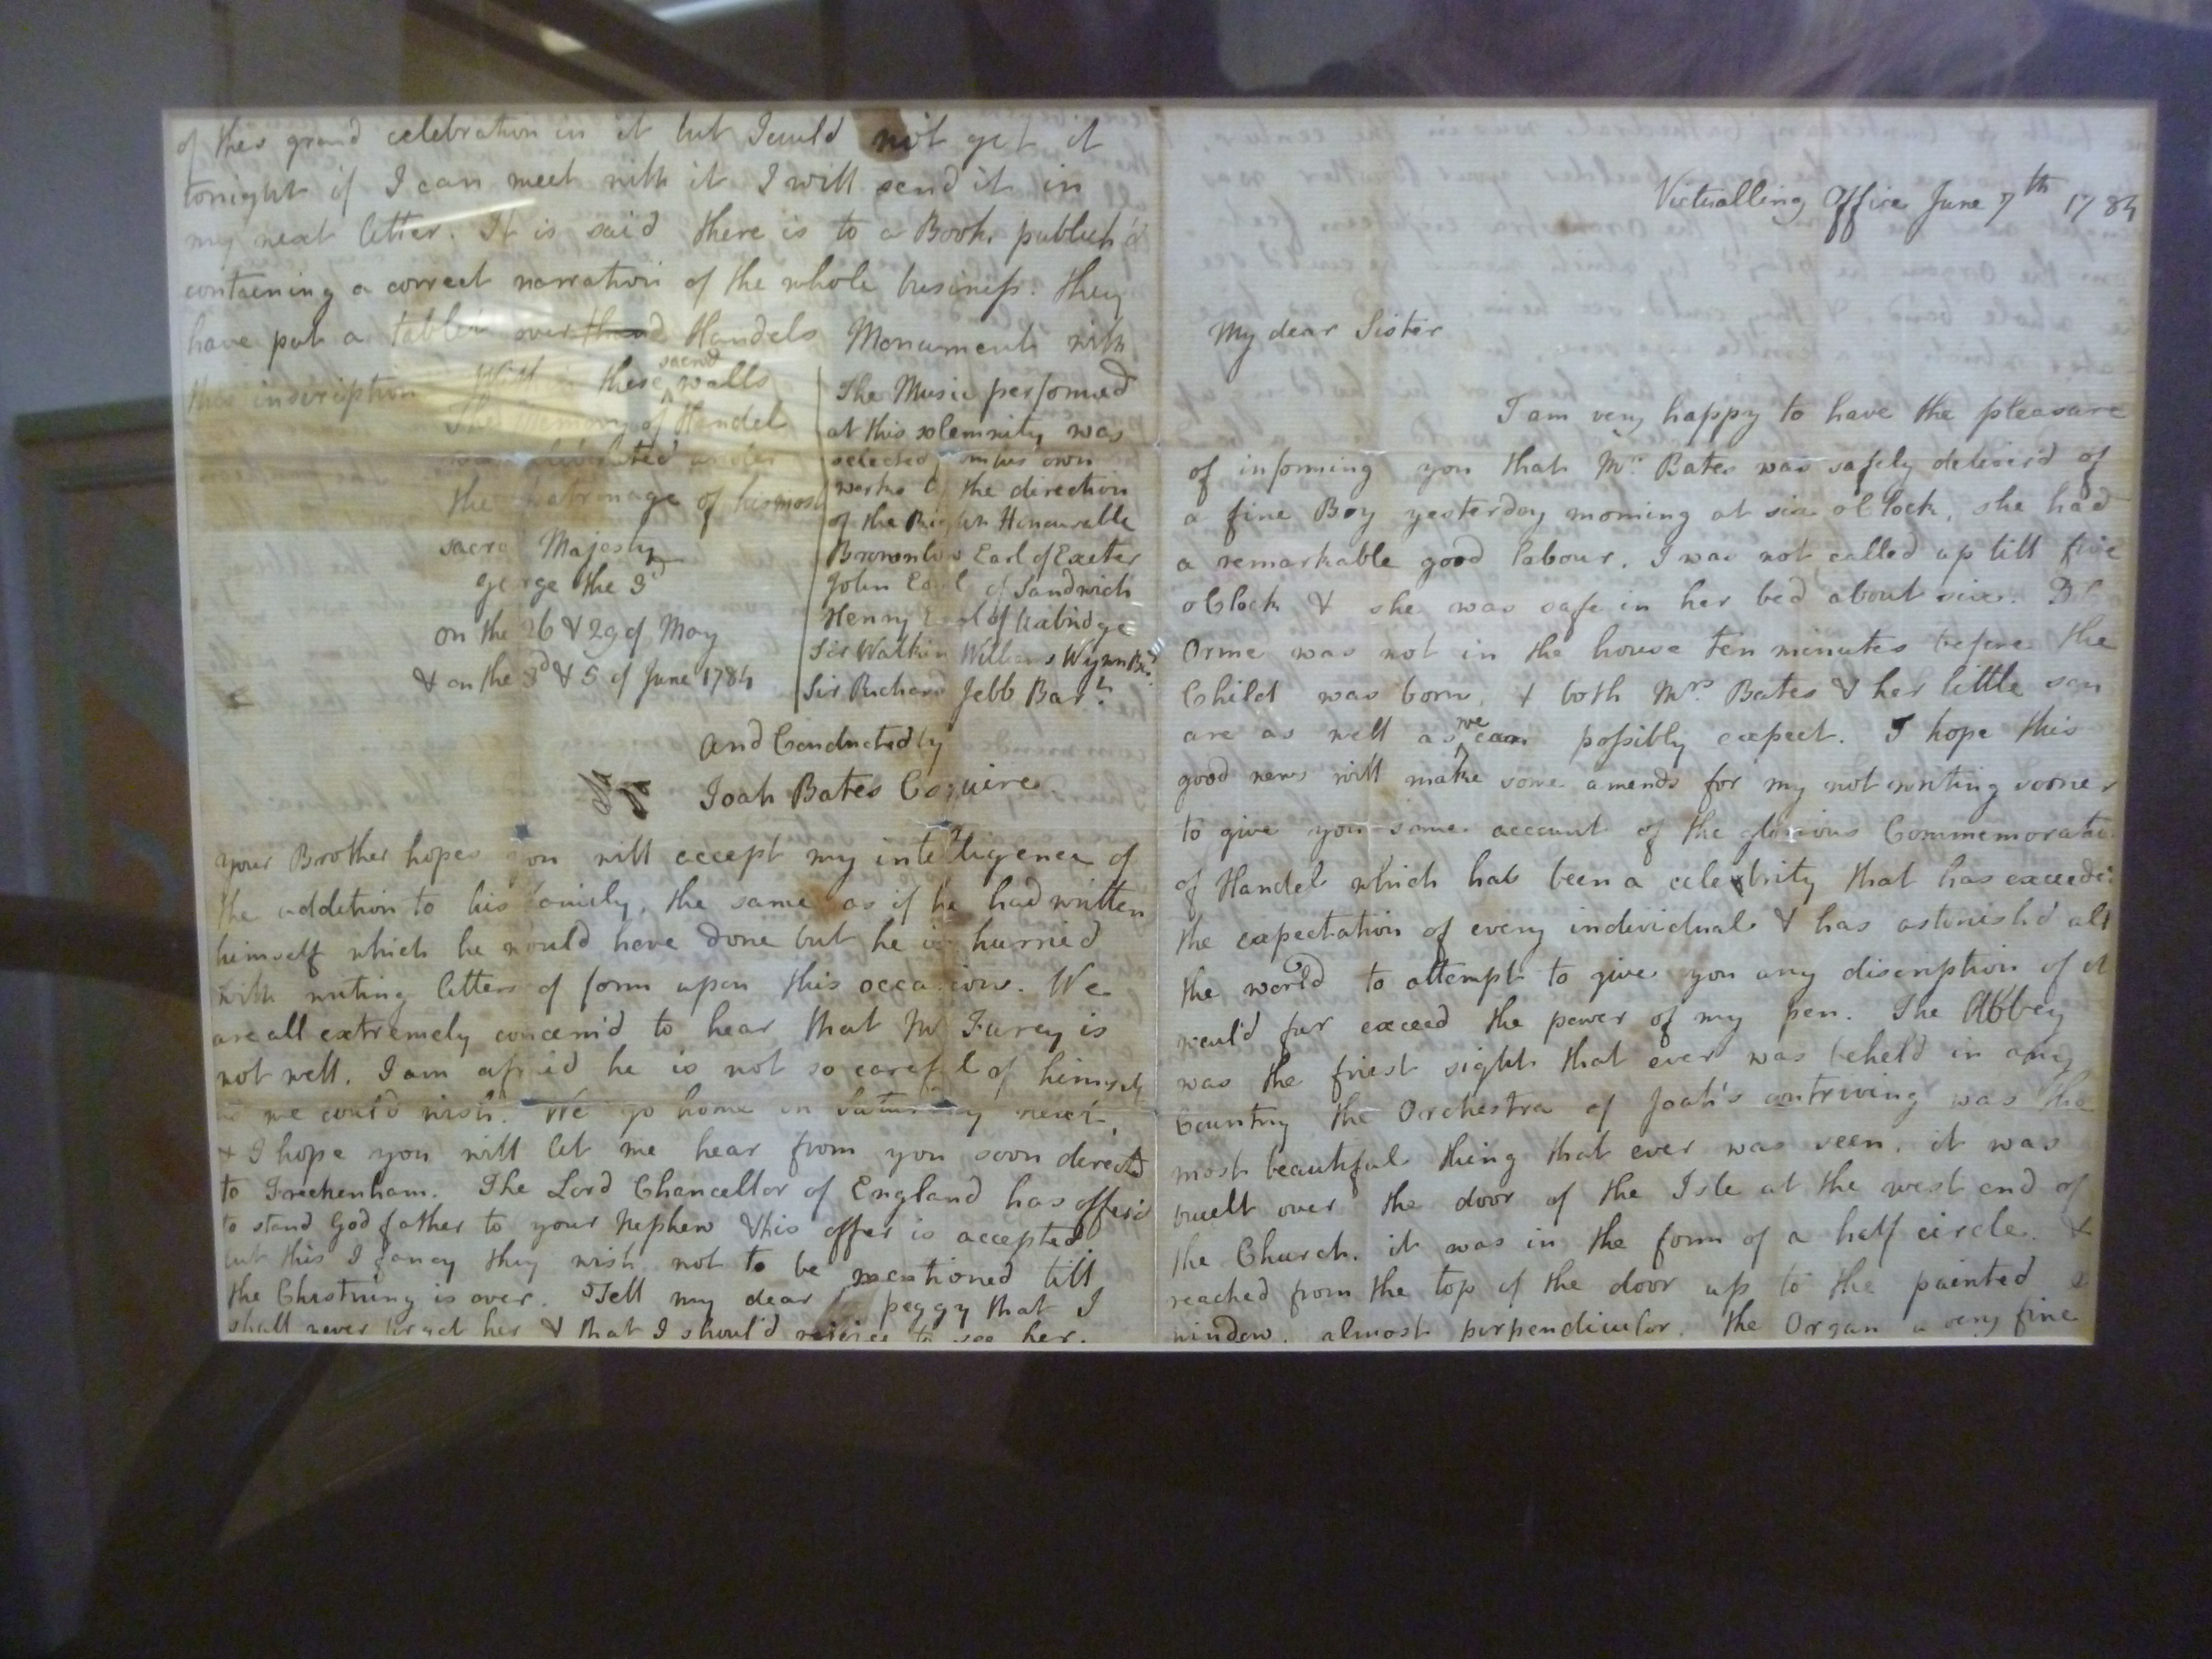 of this grand celebration in it but I could not get it
tonight if I can meet with it I will send it in
my next letter. It is said there is to a Book publish'd
containing a correct narration of the whole business. they
have put a tablet over Handels Monument with
this inscription
With in these sacred walls
The Memory of Handel
was under
the patronage of his most
sacred Majesty
George the 3d
on the 26 & 29 of May
& on the 3d & 5 of June 1784
The Music performed
at this solemnity was
selected from his own
works by the direction
of the Right Honourable
Brownlow Earl of Exeter
John Earl of Sandwich
Henry Earl of Uxbridge
Sir Watkin Williams Wynn Bt
Sir Richard Jebb Bart.
and Conducted by
Joah Bates Esquire.
your Brother hopes you will accept my intelligence of
the addition to his family, the same as if he had written
himself which he would have done but he is hurried
with writing letters of form upon this occasion. We
are all extremely concern'd to hear that Mr Furey is
not well. I am afraid he is not so careful of himself
as we could wish. We go home on Saturday next,
& I hope you will let me hear from you soon directed
to Freckenham. The Lord Chancellor of England has offer'd
to stand Godfather to your Nephew & his offer is accepted
but this I fancy they wish not to be mentioned till
the Christning is over. Tell my dear peggy that I
shall never forget her & that I should rejoice to see her.
Victualling Office June 7th 1784
My dear Sister
I am very happy to have the pleasure
of informing you that Mrs Bates was safely deliver'd of
a fine Boy yesterday morning at six o'Clock, she had
a remarkable good labour, I was not called up till five
oClock & she was safe in her bed about six. Dr
Orme was not in the house ten minutes before the
Child was born, & both Mrs Bates & her little son
are as well as we can possibly expect. I hope this
good news will make some amends for my not writing sooner
to give you some account of the glorious Commemoration
of Handel which has been a celebrity that has exceeded
the expectation of every individual & has astonish'd all
the world to attempt to give you any discription of it
would far exceed the power of my pen. The Abbey
was the finest sight that ever was beheld in any
Country the Orchestra of Joah's contriving was the
most beautiful thing that ever was seen, it was
built over the door of the Isle at the west end of
the Church. it was in the form of a half circle &
reached from the top of the door up to the painted
window, almost perpendicular. the Organ a very fine